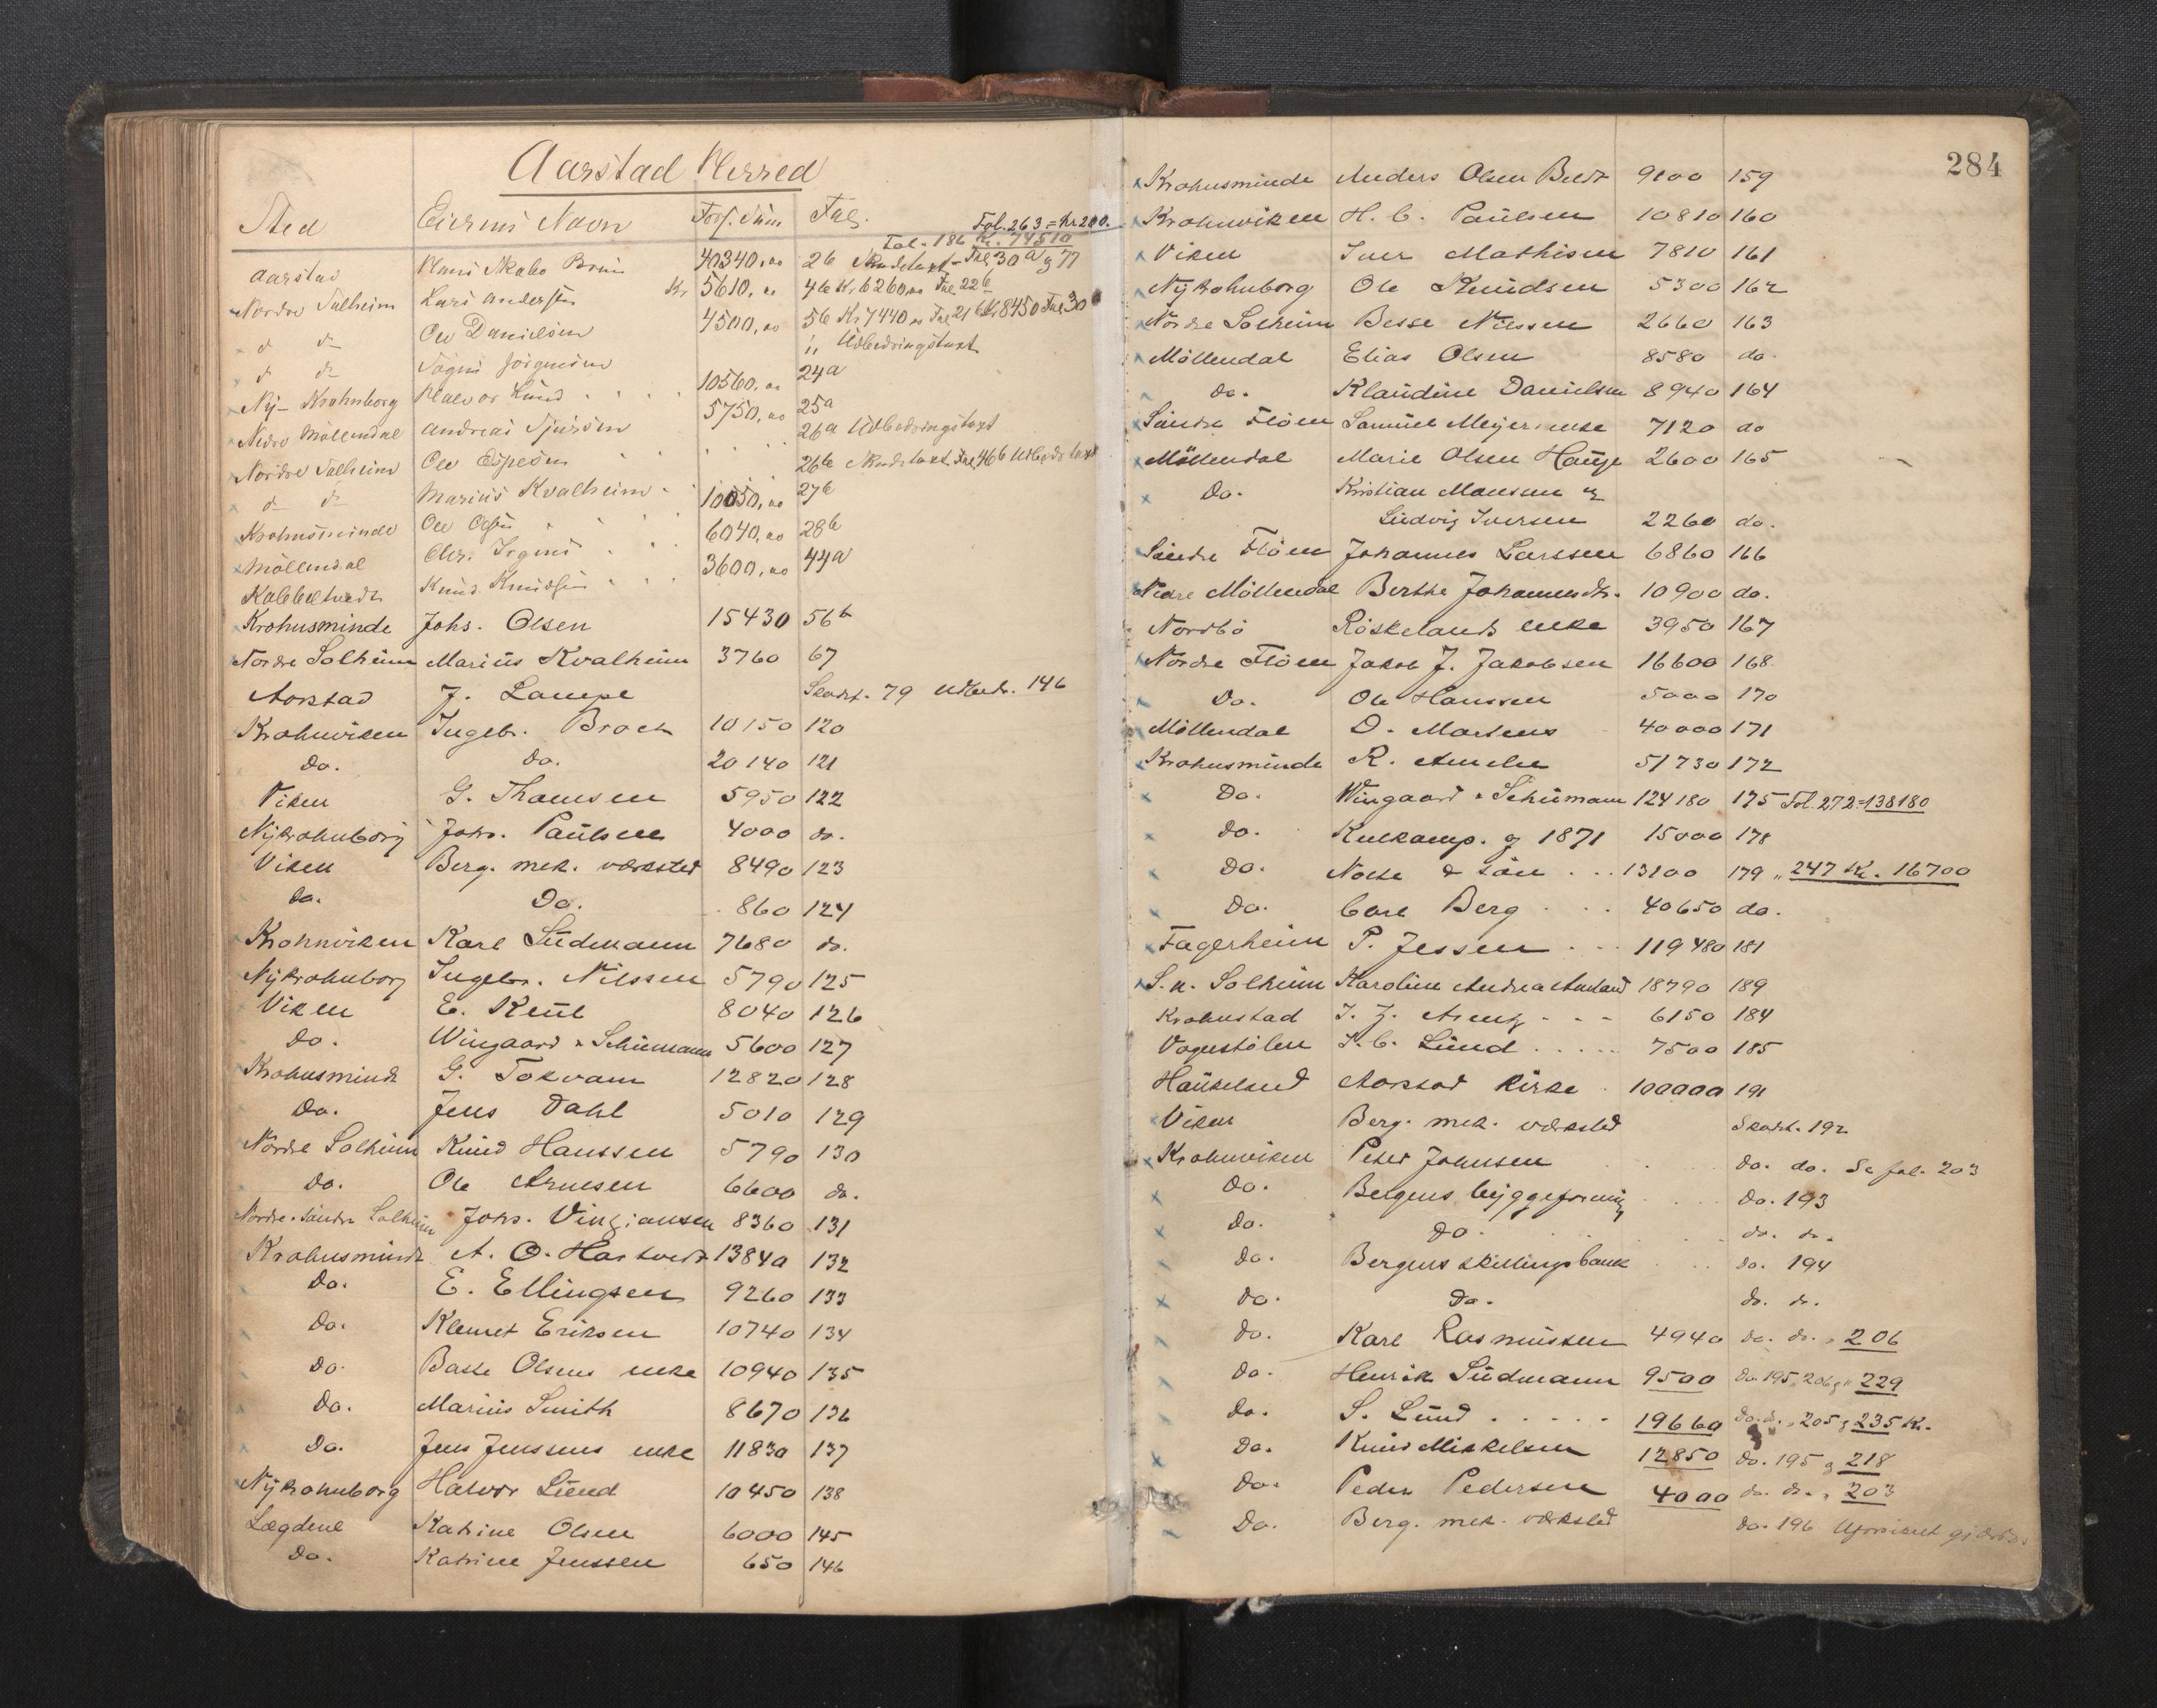 Aarstad Herred
Sted Eierens Navn Fors. Sum Fol.
Fol. 263 = Kr 200.
Fol. 186 Kr. 74510
Aarstad Hans Skabo Brun 40340,00 26 Skadetaxt - Fol 30a og 77
Nordre Solheim Lars Andersen Kr 5610,00 46 Kr 6260,00 Fol 226
do do Ole Danielsen 4500,00 56 Kr 7440,00 Fol 216 Kr 8450 Fol 30
do do Jörgensen " Udbedringstaxt
Ny-Krohnborg Halvor Lund 10560,00 24a
Nedre Möllendal Andreas Sjursen 5750,00 25a
Nordre Solheim Ole Espesen 26a Udbedringstaxt
do do Marius Kvalheim 26b Skadetaxt Fol 466 Udbeds taxt
Krohnsminde Ole Olsen 10050,00 276
Möllendal Chr. 6040,00 286
Kalfaltvedt Knud Knudsen 3600,00 44a
Krohnsminde Johs. Olsen 15430 56b
Nordre Solheim Marius Kvalheim 3760 67
Aarstad J. Lampe Skadst. 79 Udbedr. 146
Krohnviken Ingebr. Broch 10150 120
Do. Do. 20140 121
Viken G. Thomsen 5950 122
Nykrohnborg Johs. Paulsen 4000 do.
Viken Berg. mek. værksted 8490 123
Do. Do. 860 124
Krohnviken Karl Südmann 7680 do.
Nykrohnborg Ingebr. Nilssen 5790 125
Viken E. Keül 8040 126
Do. Wingaard & Schümann 5600 127
Krohnsminde G. Tokvam 12820 128
Do. Jens Dahl 5010 129
Nordre Solheim Knud Hanssen 5790 130
Do. Ole Arnesen 6600 do.
Nordre & söndre Solheim Johs. Vingjansen 8360 131
Krohnsminde A. O. Hartvedt 13840 132
Do. E. Ellingsen 9260 133
Do. Klemet Eriksen 10740 134
Do. Basse Olsens enke 10940 135
Do. Marius Smith 8670 136
Do. Jens Jenssens enke 11830 137
Nykrohnborg Halvor Lünd 10450 138
Lægdene Katrine Olsen 6000 145
Do. Katrine Jenssen 650 146
284
Krohnsminde Anders Olsen Bredt 9100 159
Krohnviken H. C. Paulsen 10810 160
Viken Iver Mathisen 7810 161
Nykrohnborg Ole Knudsen 5300 162
Nordre Solheim Besse Nilssen 2660 163
Möllendal Elias Olsen 8580 do.
do. Klaudine Danielsen 8940 164
Söndre Flöen Samuel Meyers enke 7120 do
Möllendal Marie Olsen Hauge 2600 165
Do. Kristian Monssen og
Ludvig Iversen 2260 do.
Söndre Flöen Johannes Larssen 6860 166
Nedre Möllendal Berthe Johannesdtr. 10900 do.
Nordbö Röskelands enke 3950 167
Nordre Flöen Jakob J. Jakobsen 16600 168
Do. Ole Hanssen 5000 170
Möllendal D. Martens 40000 171
Krohnsminde R. Amelie 51730 172
Do. Wingaard & Schümann 124180 175 Fol. 272 = 138180
Do. Kulkomp. af 1871 15000 178
Do. Nolte & sön 13100 179 " 247 Kr. 16700
Do. Carl Berg 40650 do.
Fagerheim P. Jessen 119480 181
S. n. Solheim Karoline Andrea Amland 18790 189
Krohnstad J. J. Arentz 6150 184
Vognstölen J. C. Lünd 7500 185
Haukeland Aarstad kirke 100000 191
Viken Berg. mek. værksted Skadst. 192
Krohnviken Peter Johnsen do. do. Se fol. 203
Do. Bergens byggeforening do. 193
Do. Do. do. do.
Do. Bergens skillingsbank do. 194
Do. Do. do. do.
Do. Karl Rasmussen 4940 do. do. " 206
Do. Henrik Südmann 9500 do 195 " 206 og 229
Do. S. Lünd 19660 do. do. " 205 og 235 Kr.
Do. Knud Mikkelsen 12850 do. 195 og 218
Do. Peder Pedersen 4000 do. do. " 203
Do. Berg. mek. værksted do. 196